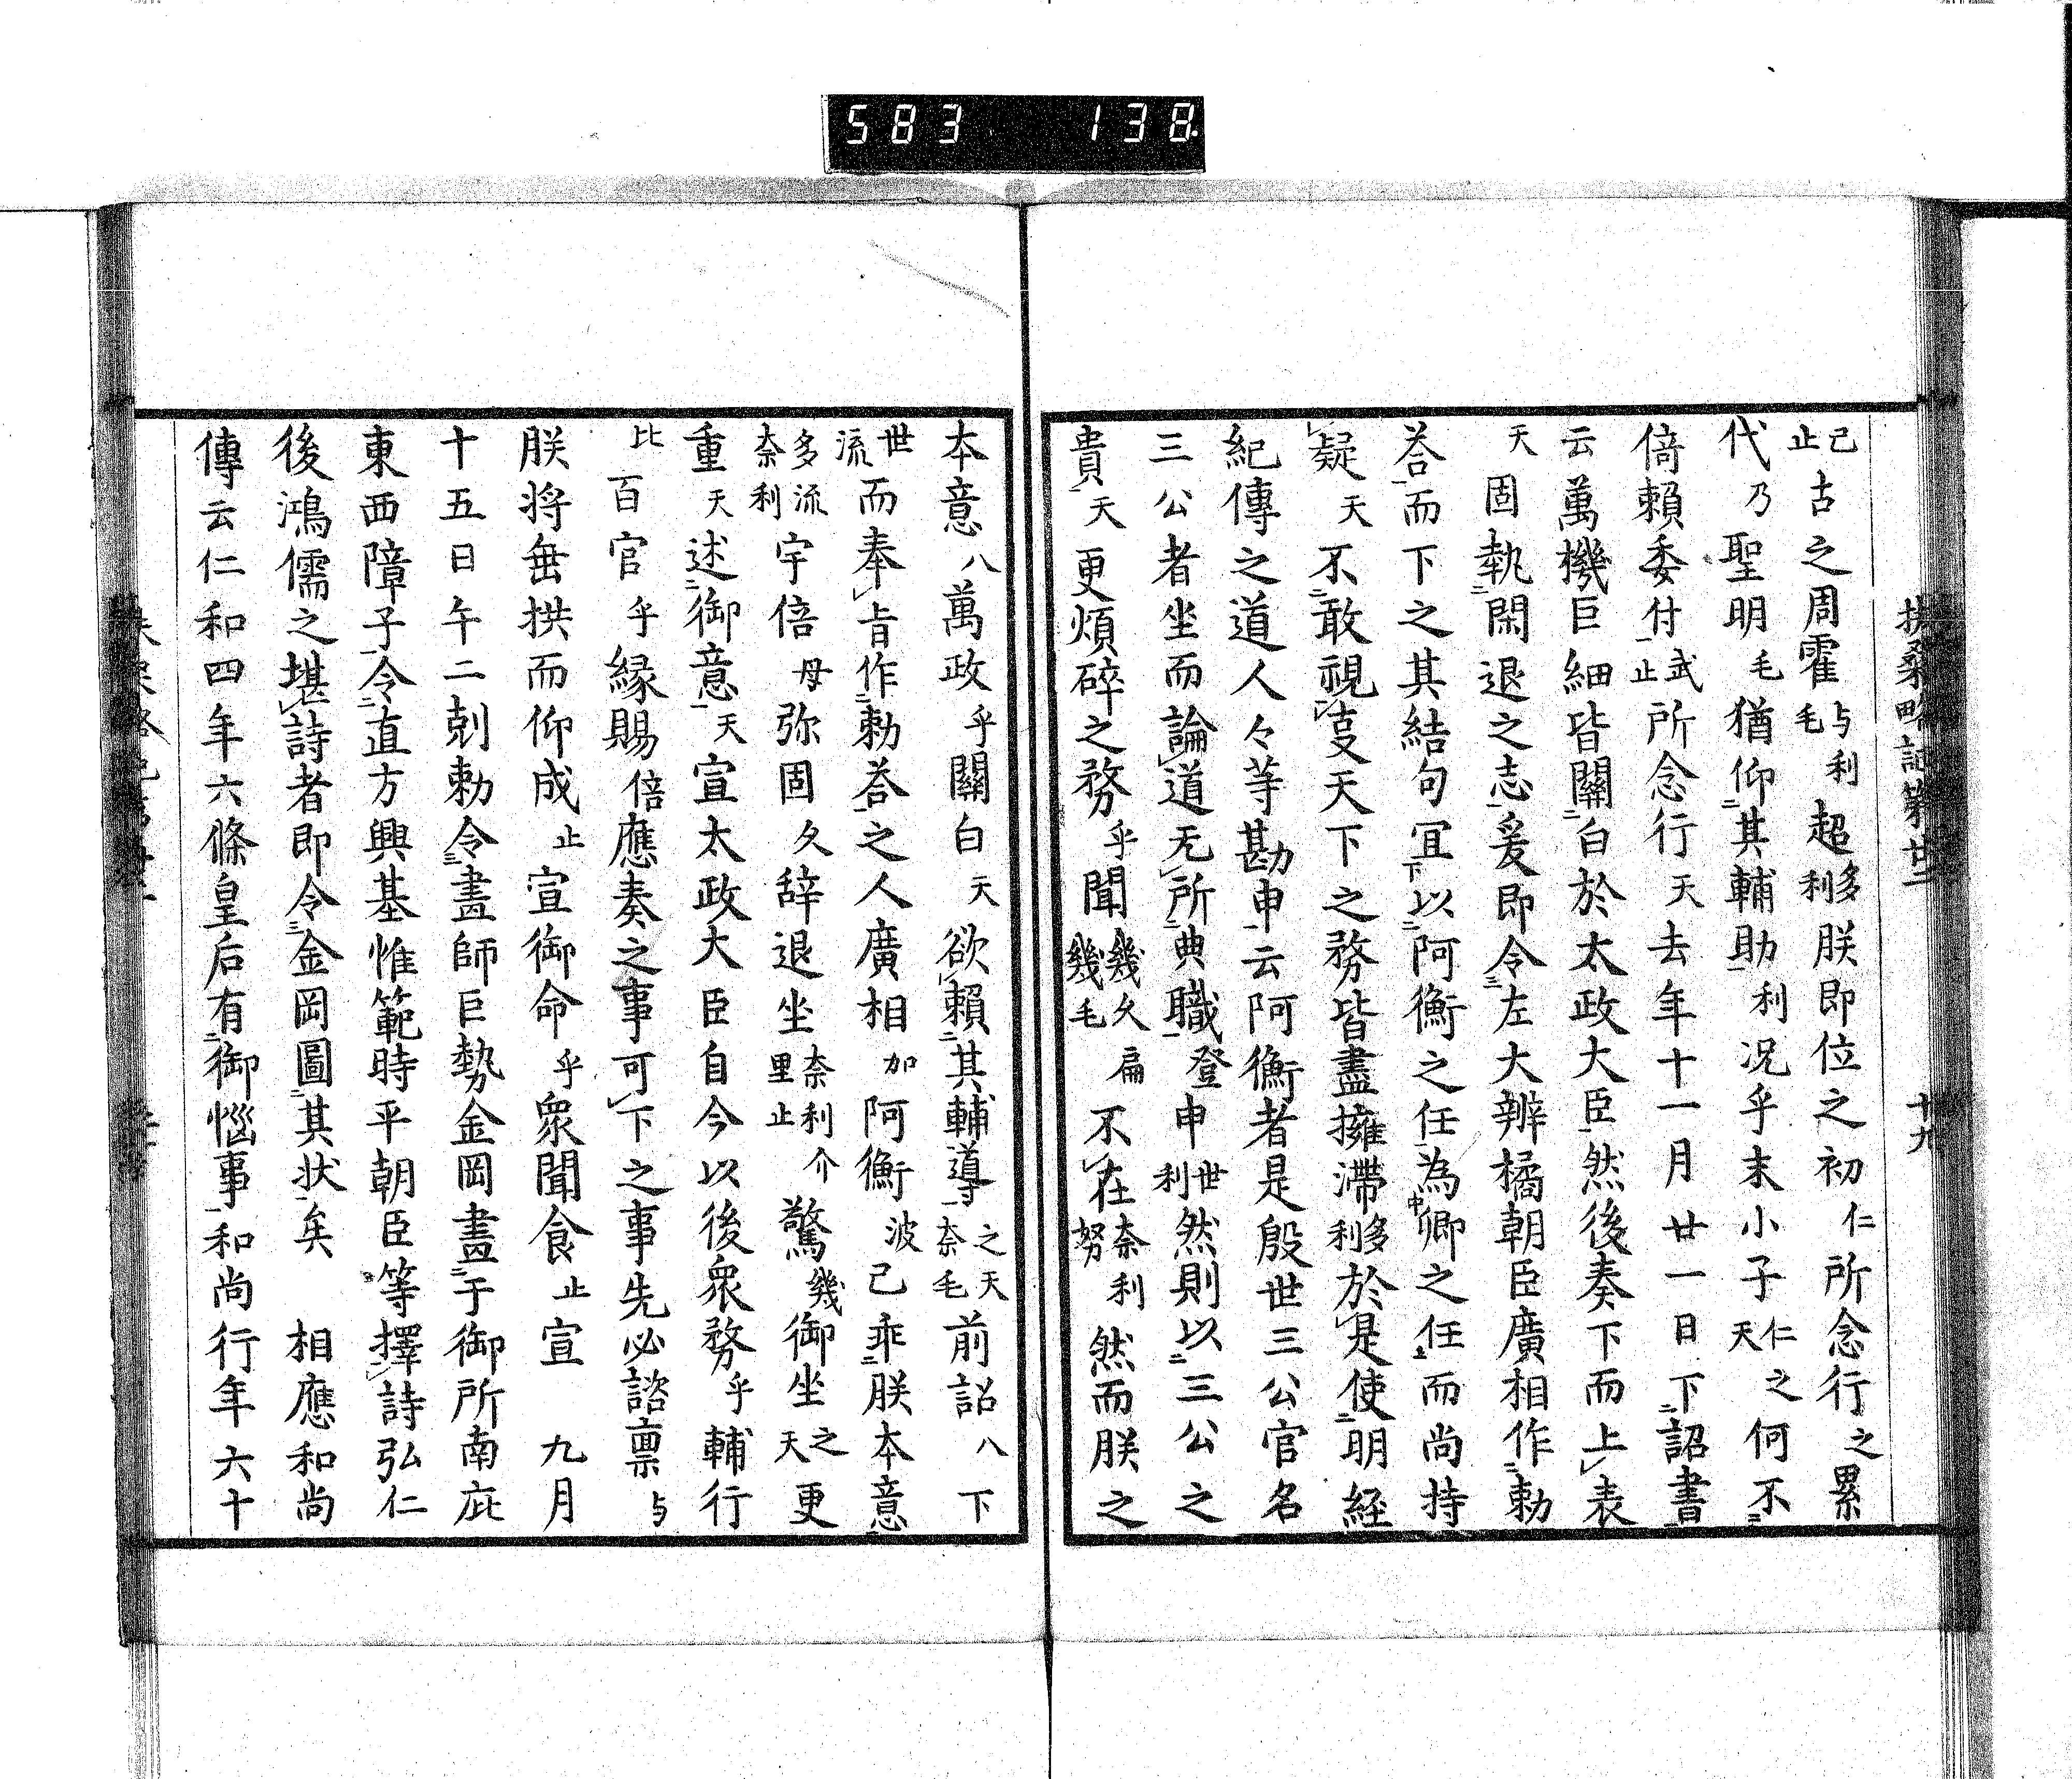 583 138
扶桑略記第廿二 十九
己止古之周霍与利毛超多利朕即位之初仁所念行之累
代乃聖明毛猶仰其輔助利况乎末小子仁天之何不
倚賴委付武止所念行天去年十一月廿一日下詔書
云萬機巨細皆關白於太政大臣然後奏下而上表
天固執閑退之志爰即令左大辨橘朝臣廣相作勅
荅而下之其結句宜以阿衡之任為卿之任而尚持
疑天不敢視叓天下之務皆盡擁滯多利於是使明經
紀傳之道人々等勘申云阿衡者是殷世三公官名
三公者坐而論道无所典職登申世利然則以三公之
貴天更煩碎之務乎聞幾久幾毛扁不在奈利努利然而朕之
本意八萬政乎關白天欲賴其輔導之天奈毛前詔八下
世流而奉旨作勅荅之人廣相加阿衡波己乖朕本意
多流奈利宇倍母弥固久辞退坐奈利里止介驚幾御坐之天更
重天述御意天宣太政大臣自今以後衆務乎輔行
比百官乎緣賜倍應奏之事可下之事先必諮禀与
朕将垂拱而仰成止宣御命乎衆聞食止宣 九月
十五日午二剋勅令畫師巨勢金岡畫于御所南庇
東西障子令直方興基惟範時平朝臣等擇詩弘仁
後鴻儒之堪詩者即令金岡圖其状矣 相應和尚
傳云仁和四年六條皇后有御惱事和尚行年六十